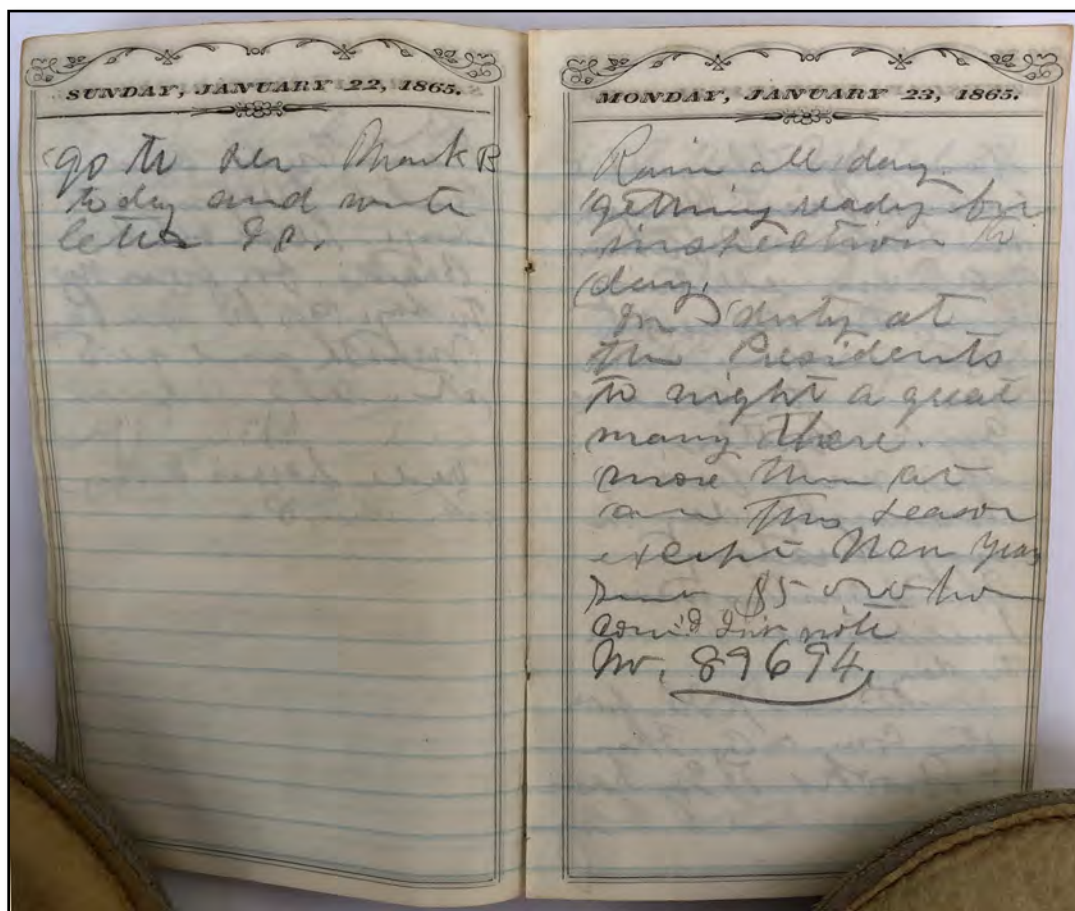 SUNDAY, JANUARY 22, 1865.
go to see Frank B
today and write
letters &c.
MONDAY, JANUARY 23, 1865.
Rain all day.
getting ready for
inspection to
day.
On duty at
the Presidents
to night a great
many there.
more than at
this season
except New Years
$5
note
No. 89694.